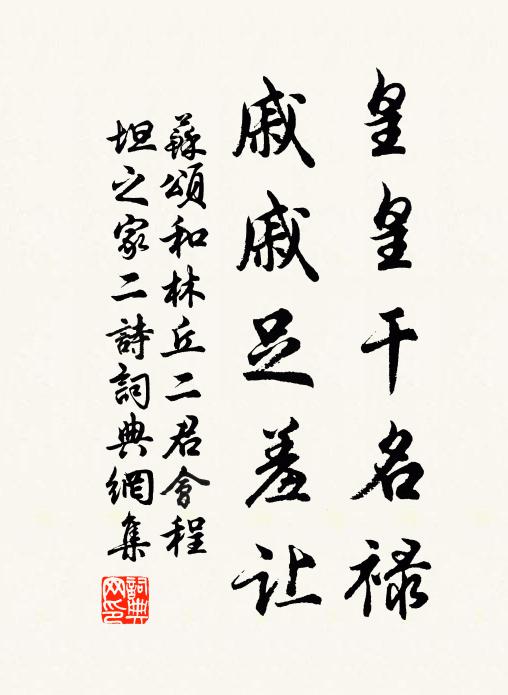 皇皇干名禄
戚戚足羞让
蘇頌和林丘二君會程
坦之家二詩詞典網集
詞典网印